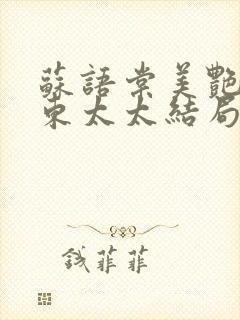 蘇語棠美艷
東太太結局
錢菲菲